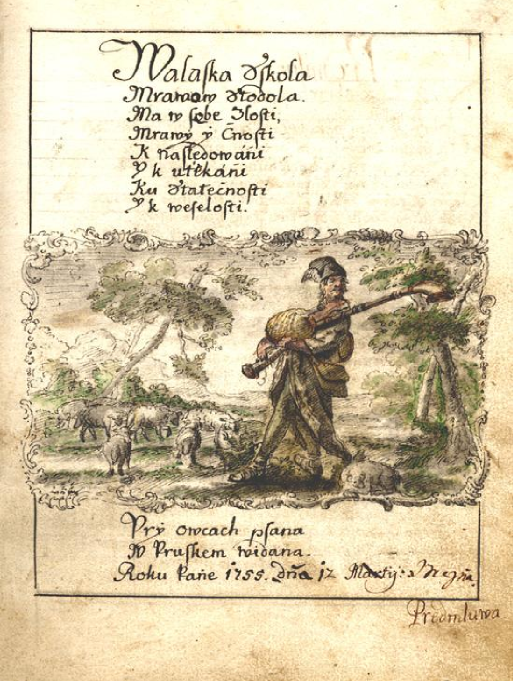 Walaska Sskola
Mrawow Stodola.
Ma w sobe Zlosti,
Mrawy y Cnosti
K nasledowáni
Y k utěkáni
Ku Statečnosti
Y k weselosti.
Pry owcach psana
W Pruskem widana.
Roku Pane 1755. Dňa 12 Martij:
Predmluwa